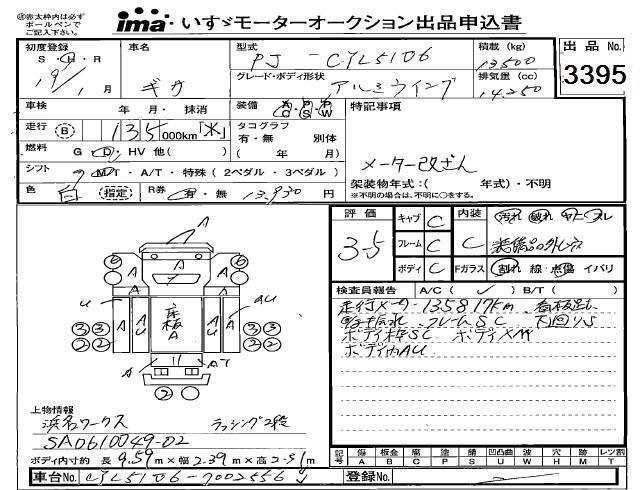 赤太枠内は必ず
ボールペンで
ご記入下さい。
ima いすゞモーターオークション出品申込書
初度登録 S・H・R 19/1月
車名 ギガ
型式 PJ-CYL51D6
グレード・ボディ形状 アルミウイング
積載 (kg) 13,500
排気量 (cc) 14,250
出品 No.
3395
車検 年 月・抹消
装備 AC P・S P・W
特記事項
走行 B 135 000km「水」
タコグラフ 有・無 別体
( 年 月)
燃料 G・D・HV 他( )
シフト MT・A/T・特殊 (2ペダル・3ペダル)
色 白 (指定) R券 有・無 13,930 円
メーター改ざん
架装物年式:( 年式)・不明
※不明の場合は、不明に○をする。
評価 3-5
キャブ C 内装 C 汚れ 破れ ヤニ スレ
フレーム C 装備品の外しキズ
ボディ C Fガラス 割れ・線・点傷・イバリ
検査員報告 A/C ( ✓ ) B/T ( )
走行メーター135817km
フレームSC 下回りS
ボディ枠SC ボディXM
ボディ内AU
6 6
A A A A A A
U A AU 床板A AU A AU
3 3 3 3
2 2 2 2
A AT
2 2
上物情報
浜名ワークス ラッシング2段
SA0610049-02
ボディ内寸約 長 9.59m×幅 2.39m×高 2.51m
記号 傷 A 板金 B 腐 C 塗 P 錆 S 凹凸曲 U 波 W 穴 H 跡 M レツ割 T
車台No. CYL51D6-7002556
登録No.